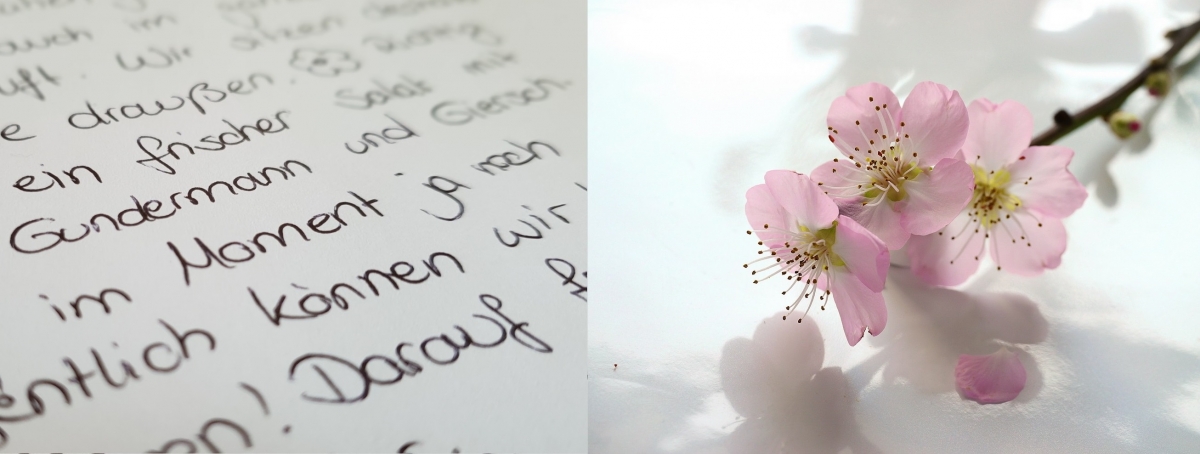 auch im
uft. Wir sitzen
e draußen. Richtig
ein frischer Salat mit
Gundermann und Giersch.
im Moment ja noch
entlich können wir
en! Darauf